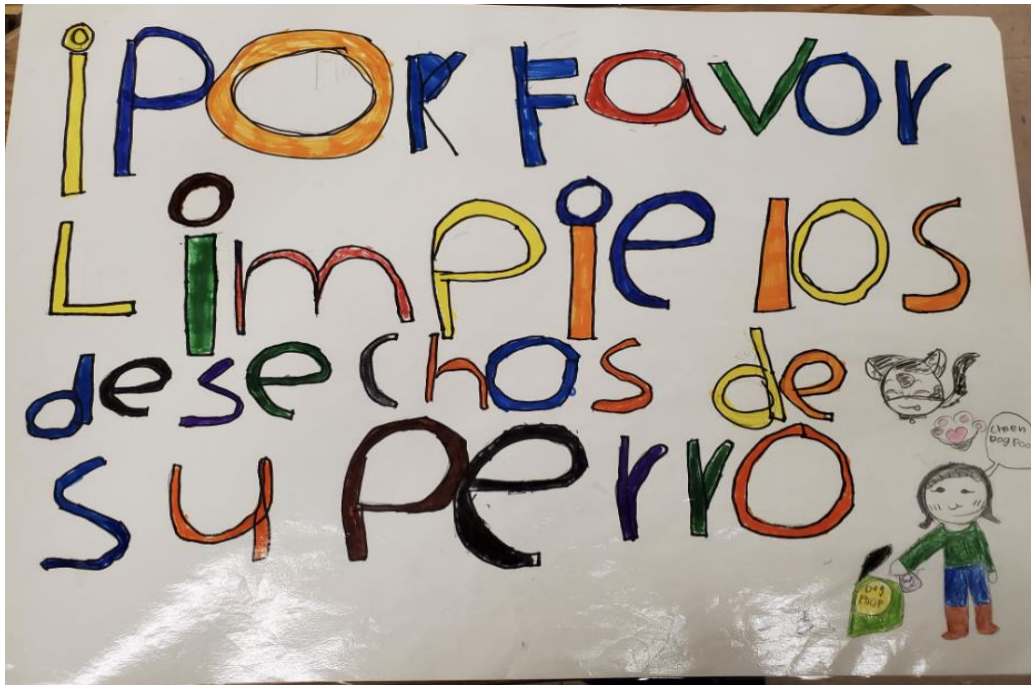 ¡POr Favor
Limpie los
desechos de
su Perro
Clean
Dog Poo
Dog
Poup